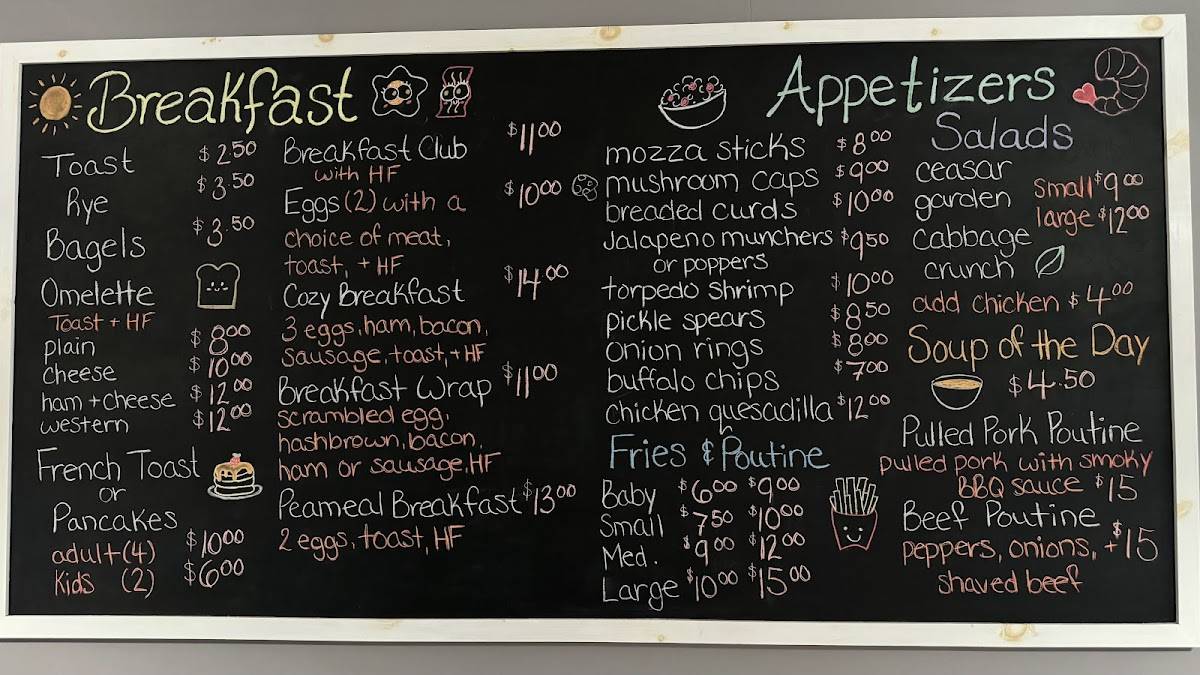 Breakfast
Toast $2.50
Rye $3.50
Bagels $3.50
Omelette
Toast + HF
plain $8.00
cheese $10.00
ham + cheese $12.00
western $12.00
French Toast
or
Pancakes
adult (4) $10.00
Kids (2) $6.00
Breakfast Club $11.00
with HF
Eggs (2) with a $10.00
choice of meat,
toast, + HF
Cozy Breakfast $14.00
3 eggs, ham, bacon,
sausage, toast, + HF
Breakfast Wrap $11.00
scrambled egg,
hashbrown, bacon,
ham or sausage, HF
Peameal Breakfast $13.00
2 eggs, toast, HF
Appetizers
mozza sticks $8.00
mushroom caps $9.00
breaded curds $10.00
Jalapeno munchers $9.50
or poppers
torpedo shrimp $10.00
pickle spears $8.50
Onion rings $8.00
buffalo chips $7.00
chicken quesadilla $12.00
Fries & Poutine
Baby $6.00 $9.00
Small $7.50 $10.00
Med. $9.00 $12.00
Large $10.00 $15.00
Salads
ceasar
garden
cabbage
crunch
small $9.00
large $12.00
add chicken $4.00
Soup of the Day
$4.50
Pulled Pork Poutine
pulled pork with smoky
BBQ sauce $15
Beef Poutine
peppers, onions, + $15
shaved beef